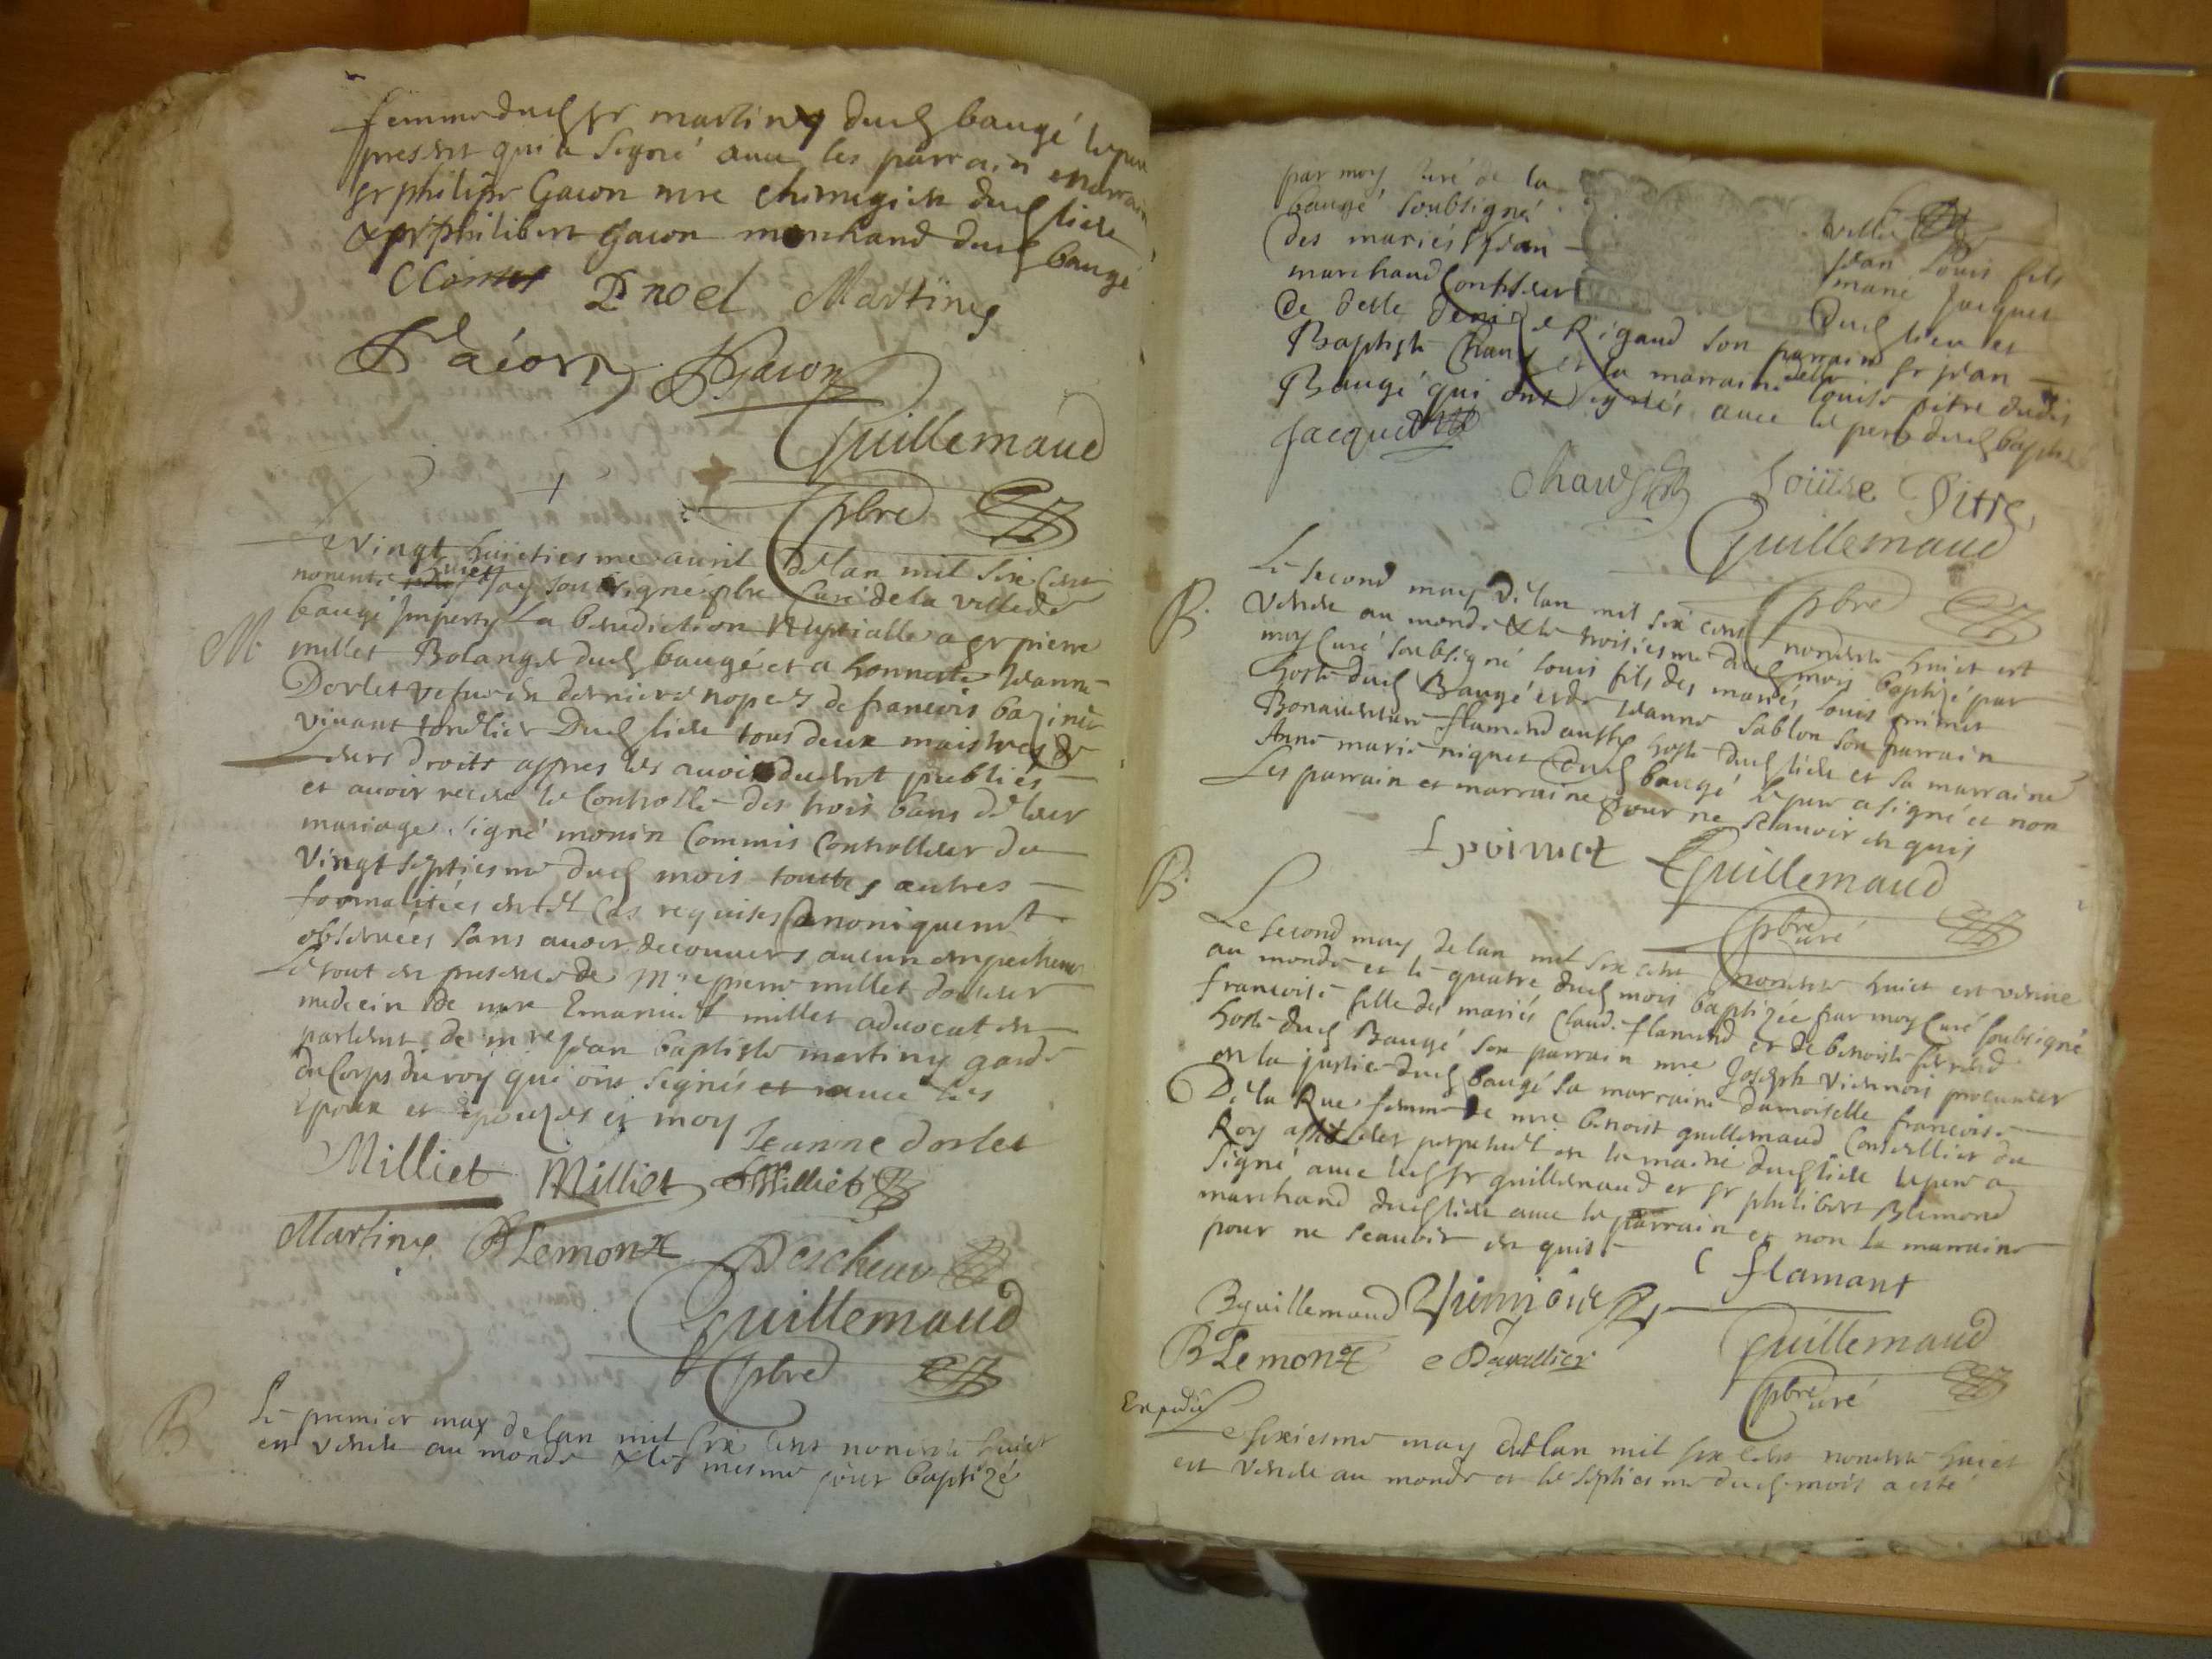 femme dud sr martiny dud baugé le pere
present qui a signé auec les parrain et marraine
sr philipe Gacon mre chirurgien dud lieu
& sr philibert Gacon marchand dud baugé
P noel Martiny
Gacon Gacon
Guillemaud
pbre
Vingt huictiesme auril de lan mil six cent
nonente huict jay soubsigné pbre curé de la ville de
baugé Imparty la benediction Nuptialle a sr pierre
M millet Bolanger dud baugé et a honneste Jeanne
Dorlet vefue en dernieres nopces de francois
viuant tondlier dud lieu tous deux maistres de
leurs droits appres les auoir duement publiés
et auoir receu le Controlle des trois bans de leur
mariage signé monin Commis Controlleur du
Vingt septiesme dud mois touttes autres
formalitées en tel cas requises Canoniquement
obseruées sans auoir decouuers aucun empechement
Le tout en presence de Mre pierre millet docteur
medecin de mre Emanuel millet aduocat en
parlement de mre Jean baptiste martiny garde
du Corps du roy qui ont signés et auec les
epoux et epouzes et moy
Jeanne dorlet
Milliet Milliet Milliet
Martiny BLemond Descheau
Guillemaud
pbre
B Le premier may de lan mil six cent nonente huict
est venu au monde & le mesme jour baptizé
par moy curé de la ville
baugé soubsigné Jean Louis fils
des mariés Jean marie Jacquet
marchand Confiseur dud lieu et
de delle denise Rigaud son parrain sr Jean
Baptiste Chanel et la marraine delle louise pitre dudit
Baugé qui ont signés auec le pere dud baptisé
Jacquet
Louise Pitre
Guillemaud
pbre
B. Le second may de lan mil six cent nonente huict est
venu au monde & le troisiesme dud mois baptizé par
moy Curé soubsigné louis fils des mariés louis
hoste dud Baugé et de Jeanne Sablon son parrain
Bonauenture flamend aussy hoste dud lieu et sa marraine
Anne marie niquet dud baugé le pere a signé et non
Les parrain et marraine pour ne scauoir en quis
Guillemaud
pbre curé
B. Le second may de lan mil six cent nonente huict est venue
au monde et le quatre dud mois baptizée par moy Curé soubsigné
francoise fille des mariés Claude flamend et de benoiste
hoste dud Baugé son parrain mre Joseph viennois procureur
en la justice dud baugé sa marraine damoiselle francoise
De la Rue femme de mre benoist guillemaud Conseillier du
Roy assesseur perpetuel en la mairie dud lieu le pere a
signé auec led sr guillemaud et sr philibert Blemond
marchand dud lieu auec le parrain et non la marraine
pour ne scauoir en quis
C flamant
Bguillemaud Viennois
BLemond Dauallier
Guillemaud
pbre curé
Expedié
Le sixiesme may de lan mil six cent nonente huict
est venu au monde et le septiesme dud mois a esté